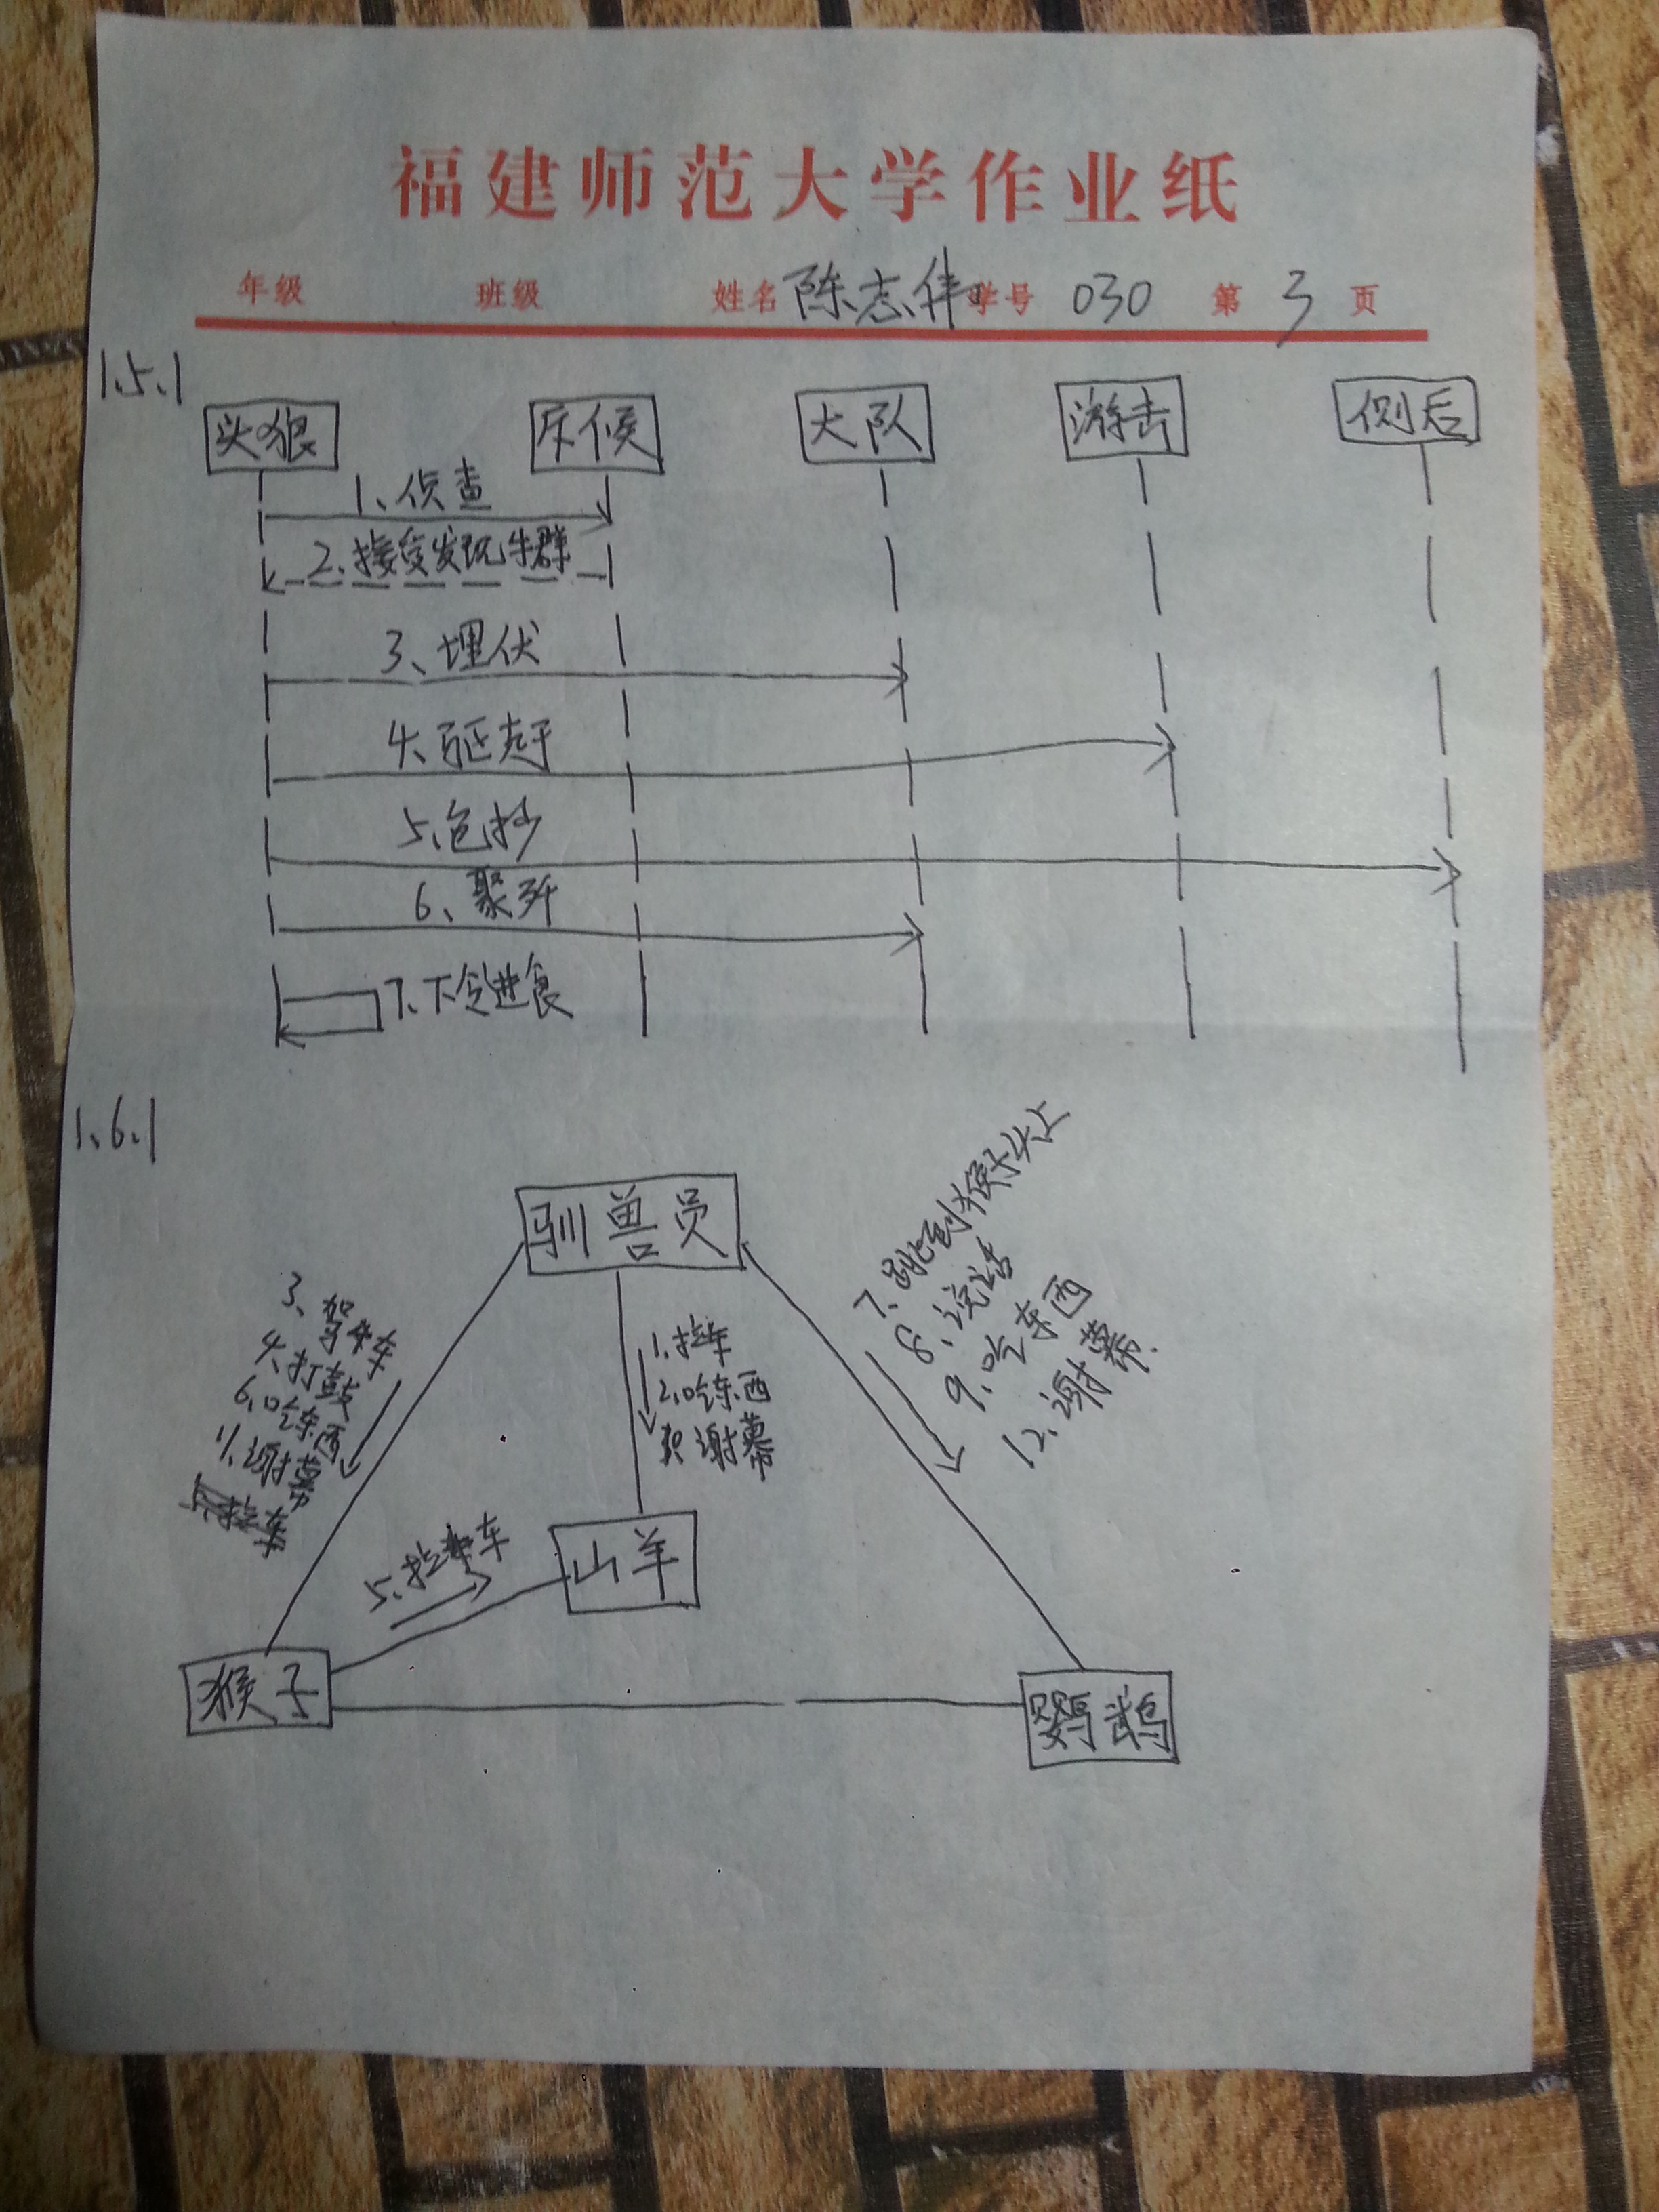 福建师范大学作业纸
年级 班级 姓名 陈志伟 学号 030 第 3 页
1.5.1
头狼 斥候 大队 游击 侧后
1、侦查
2、接受发现牛群
3、埋伏
4、驱赶
5、包抄
6、聚歼
7、下令进食
1.6.1
驯兽员
3、驾车
4、打鼓
6、吃东西
11、谢幕
1、拉车
2、吃东西
谢幕
7、跳到猴子头上
8、说话
9、吃东西
12、谢幕
5、拉车
山羊
猴子
鹦鹉